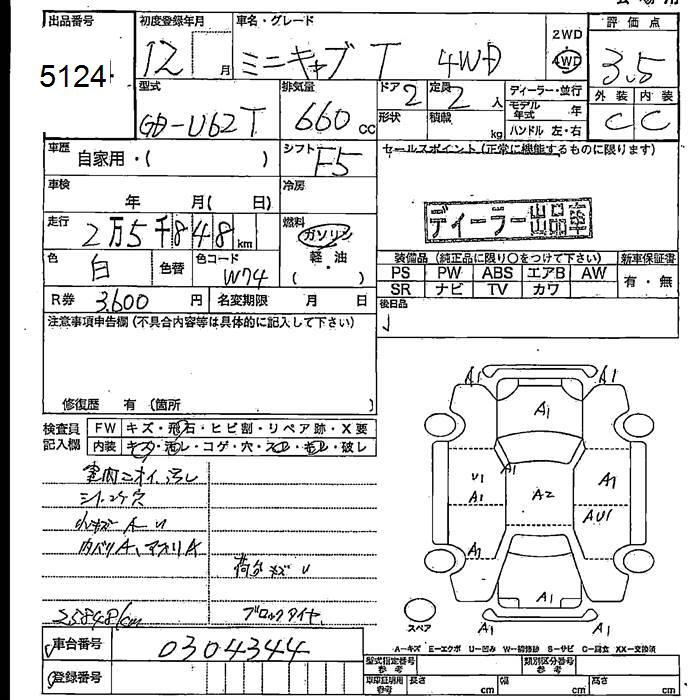 出品番号 初度登録年月 車名・グレード 評価点
5124 12 月 ミニキャブ T 4WD 2WD 4WD 3.5
型式 排気量 ドア 2 定員 2 人 ディーラー・並行 外装 内装
GD-U62T 660 cc 形状 積載 kg モデル年式 年 C C
ハンドル 左・右
車歴 自家用・( ) シフト F5 セールスポイント (正常に機能するものに限ります)
車検 年 月( 日) 冷房
ディーラー出品車
走行 2万5千848 km 燃料 ガソリン
軽・油
( )
色 白 色替 色コード W74
装備品 (純正品に限り○をつけて下さい) 新車保証書
PS PW ABS エアB AW 有・無
SR ナビ TV カワ
R券 3,600 円 名変期限 月 日 後日品
注意事項申告欄 (不具合内容等は具体的に記入して下さい)
修復歴 有 (箇所 )
検査員 FW キズ・飛石・ヒビ割・リペア跡・X要
記入欄 内装 キズ・汚レ・コゲ・穴・スレ・キレ・破レ
室内ニオイ、汚レ
シートコゲ穴
小キズ A U
内バリA、アオリA
荷台キズ U
25848km ブロックタイヤ
車台番号 0304344
登録番号
A1 A1
A1
A1
U1 A1
A1 A2
AU1
A1
A1
A1 A1
スペア
A-キズ E-エクボ U-凹み W-補修跡 S-サビ C-腐食 XX-交換済
型式指定番号 参考 類別区分番号 参考
車庫証明用 参考 長さ cm 幅 cm 高さ cm